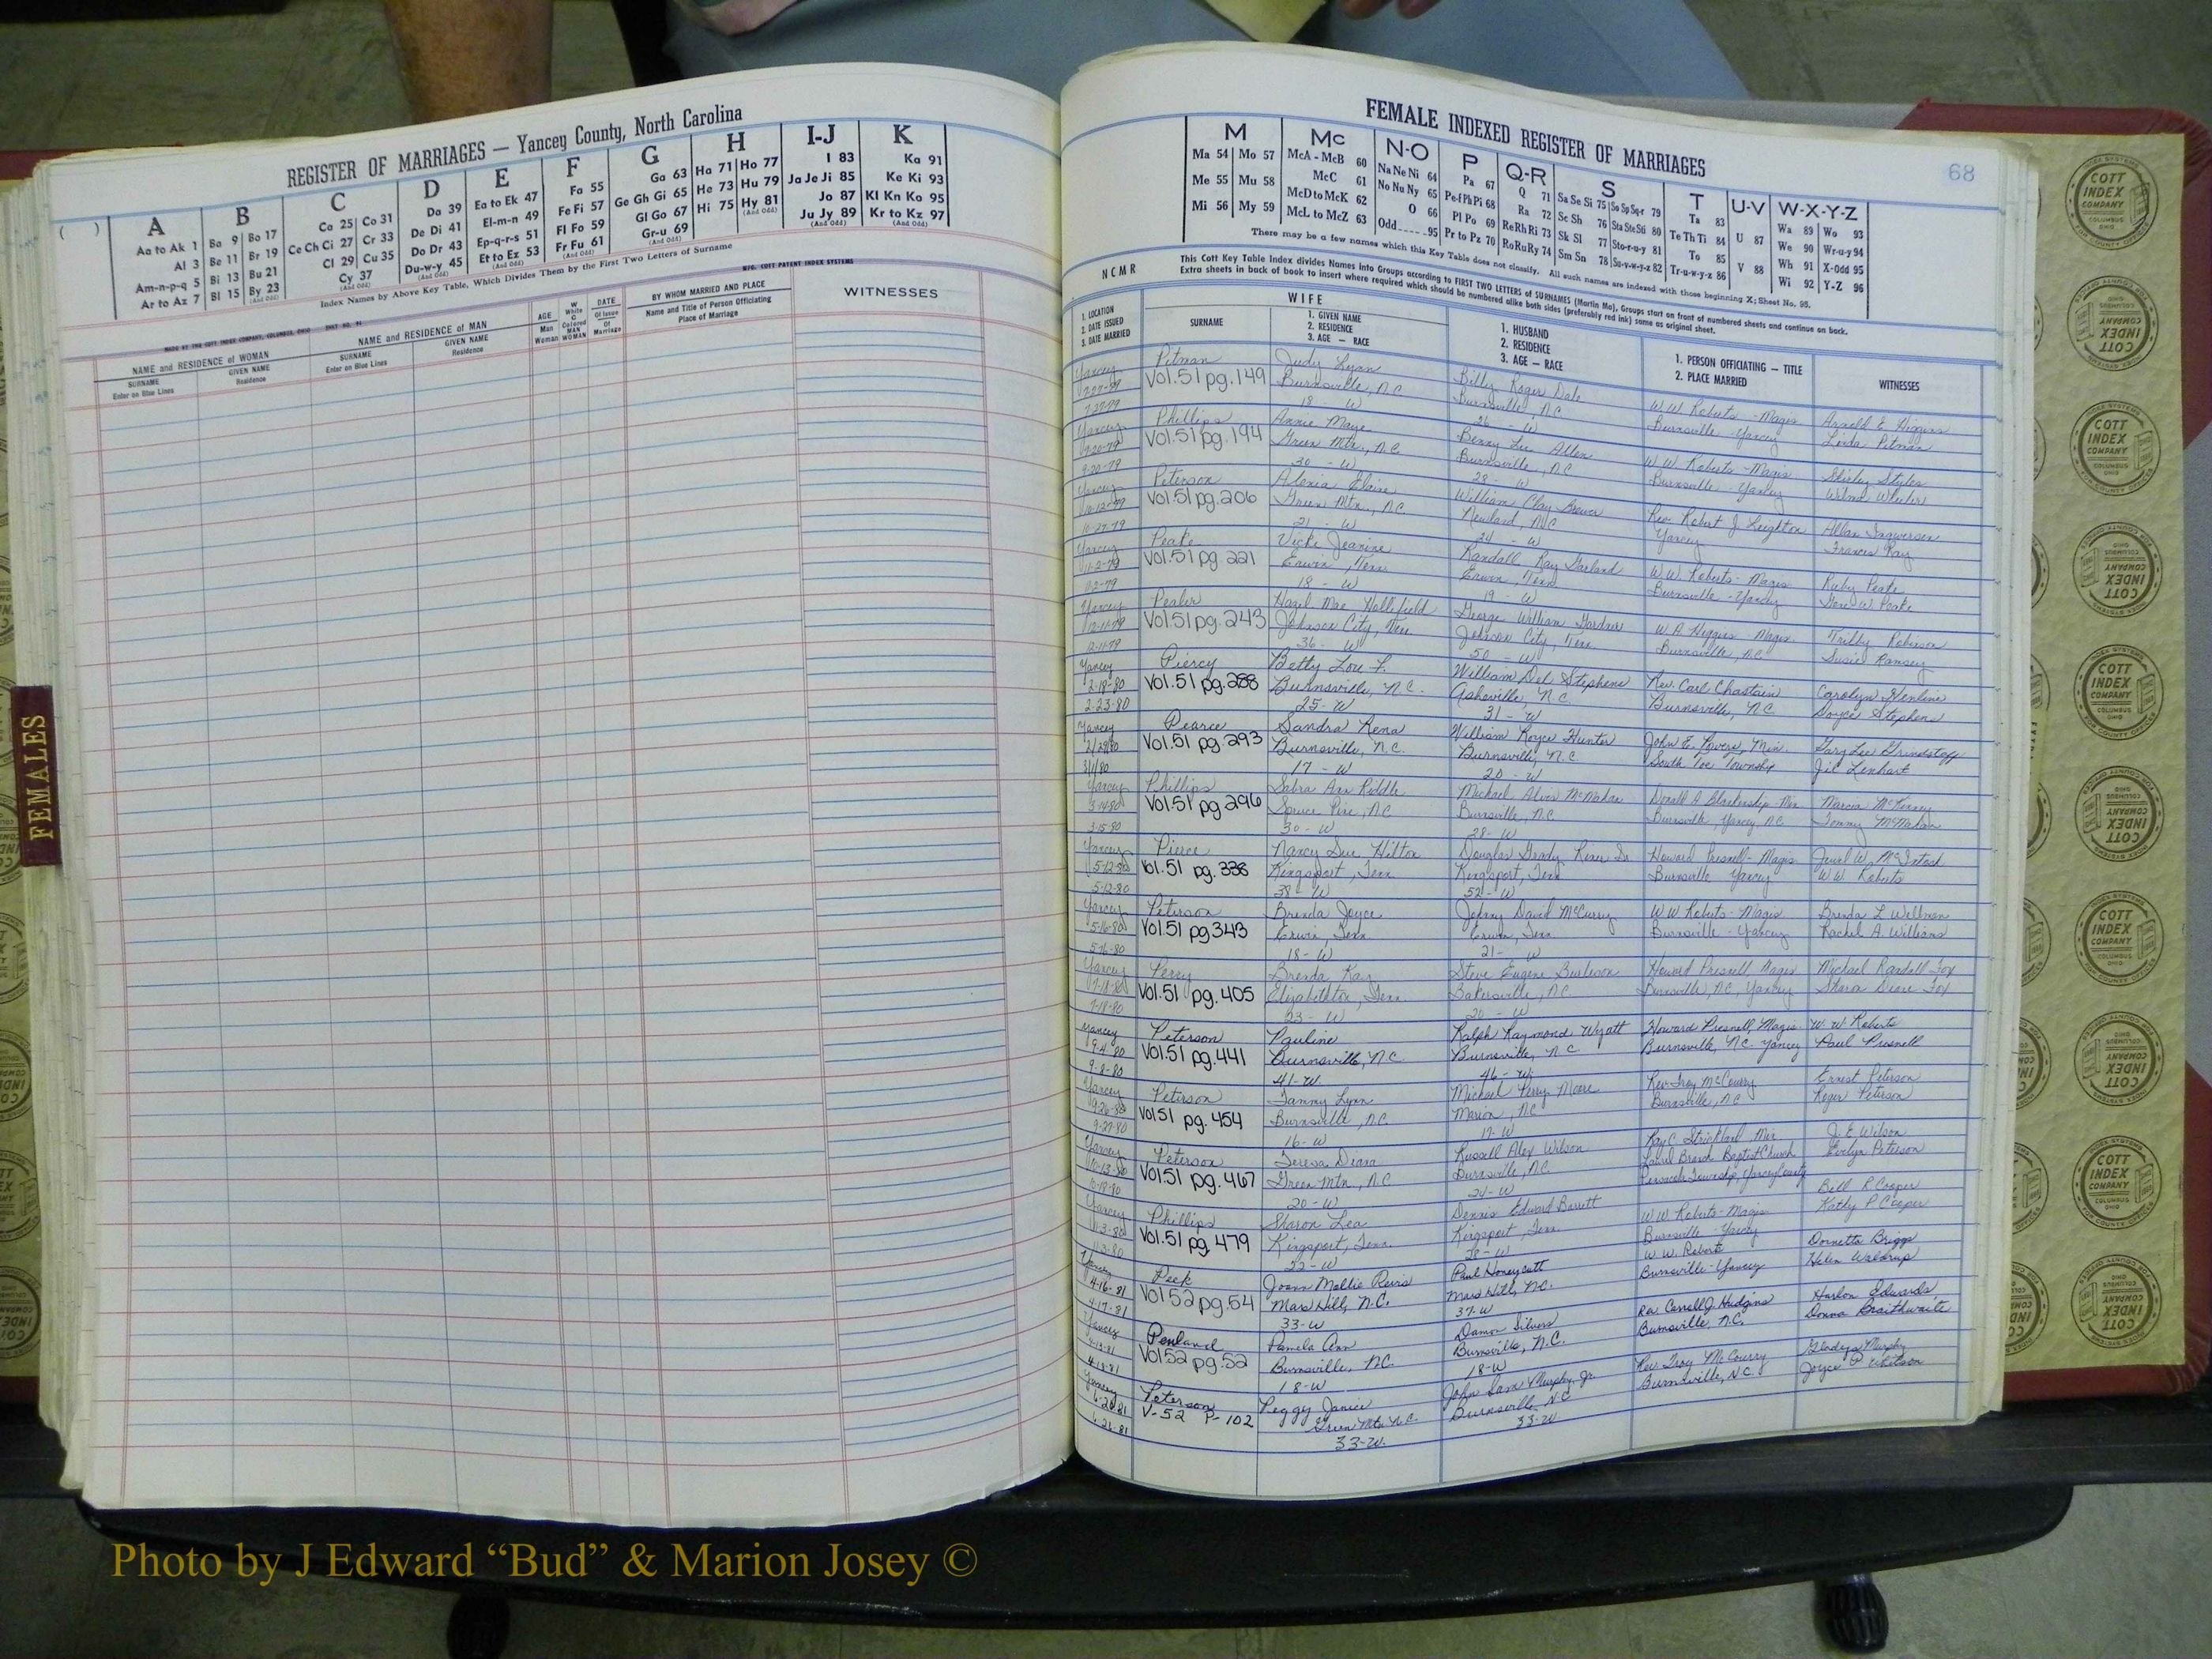 REGISTER OF MARRIAGES — Yancey County, North Carolina
( )
A
Aa to Ak 1
Al 3
Am-n-p-q 5
Ar to Az 7
B
Ba 9 Bo 17
Be 11 Br 19
Bi 13 Bu 21
Bl 15 By 23
(And Odd)
C
Ca 25 Co 31
Ce Ch Ci 27 Cr 33
Cl 29 Cu 35
Cy 37
(And Odd)
D
Da 39
De Di 41
Do Dr 43
Du-w-y 45
(And Odd)
E
Ea to Ek 47
El-m-n 49
Ep-q-r-s 51
Et to Ez 53
(And Odd)
F
Fa 55
Fe Fi 57
Fl Fo 59
Fr Fu 61
(And Odd)
G
Ga 63
Ge Gh Gi 65
Gl Go 67
Gr-u 69
(And Odd)
H
Ha 71 Ho 77
He 73 Hu 79
Hi 75 Hy 81
(And Odd)
I-J
I 83
Ja Je Ji 85
Jo 87
Ju Jy 89
(And Odd)
K
Ka 91
Ke Ki 93
Kl Kn Ko 95
Kr to Kz 97
(And Odd)
Index Names by Above Key Table, Which Divides Them by the First Two Letters of Surname
MFG. COTT PATENT INDEX SYSTEMS
NAME and RESIDENCE of WOMAN
SURNAME
Enter on Blue Lines
GIVEN NAME
Residence
NAME and RESIDENCE of MAN
SURNAME
Enter on Blue Lines
GIVEN NAME
Residence
AGE
Man
Woman
W
White
C
Colored
MAN
WOMAN
DATE
Of Issue
Of
Marriage
BY WHOM MARRIED AND PLACE
Name and Title of Person Officiating
Place of Marriage
WITNESSES
FEMALES
FEMALE INDEXED REGISTER OF MARRIAGES
68
M
Ma 54 Mo 57
Me 55 Mu 58
Mi 56 My 59
Mc
McA - McB 60
McC 61
McD to McK 62
McL to McZ 63
N-O
Na Ne Ni 64
No Nu Ny 65
O 66
Odd 95
P
Pa 67
Pe-f Ph Pi 68
Pl Po 69
Pr to Pz 70
Q-R
Q 71
Ra 72
Re Rh Ri 73
Ro Ru Ry 74
S
Sa Se Si 75 So Sp Sq-r 79
Sc Sh 76 Sta Ste Sti 80
Sk Sl 77 Sto-r-u-y 81
Sm Sn 78 Su-v-w-y-z 82
T
Ta 83
Te Th Ti 84
To 85
Tr-u-w-y-z 86
U-V
U 87
V 88
W-X-Y-Z
Wa 89 Wo 93
We 90 Wr-u-y 94
Wh 91 X-Odd 95
Wi 92 Y-Z 96
There may be a few names which this Key Table does not classify. All such names are indexed with those beginning X; Sheet No. 95.
NCMR
This Cott Key Table Index divides Names into Groups according to FIRST TWO LETTERS of SURNAMES (Martin Ma), Groups start on front of numbered sheets and continue on back.
Extra sheets in back of book to insert where required which should be numbered alike both sides (preferably red ink) same as original sheet.
1. LOCATION
2. DATE ISSUED
3. DATE MARRIED
WIFE
SURNAME
1. GIVEN NAME
2. RESIDENCE
3. AGE — RACE
1. HUSBAND
2. RESIDENCE
3. AGE — RACE
1. PERSON OFFICIATING — TITLE
2. PLACE MARRIED
WITNESSES
Yancey Pitman Judy Lynn Billy Roger Dale W.W. Roberts - Magis Arnold E. Higgins
Vol.51 pg.149 Burnsville, N.C. Burnsville, N.C. Burnsville - Yancey Linda Pitman
18 - W 26 - W
Yancey Phillips Annie Maye Benny Lee Allen W.W. Roberts - Magis Shirley Styles
9-20-79 Vol.51 pg.194 Green Mtn., N.C. Burnsville, N.C. Burnsville - Yancey Wilma Wheeler
9-20-79 30 - W 28 - W
Yancey Peterson Alexia Elaine William Clay Brewer Rev. Robert J. Leighton Allan Ingwersen
10-12-79 Vol.51 pg.206 Green Mtn., N.C. Newland, N.C. Yancey Frances Ray
10-27-79 21 - W 24 - W
Yancey Peake Vicki Jeanine Randall Ray Garland W.W. Roberts - Magis Ruby Peake
11-2-79 Vol.51 pg 221 Erwin, Tenn Erwin, Tenn Burnsville - Yancey Gene W. Peake
11-2-79 18 - W 19 - W
Yancey Pealer Hazel Mae Hollifield George William Gardner W.A. Higgins Magis. Trilby Robinson
12-11-79 Vol.51 pg.243 Johnson City, Tenn Johnson City, Tenn. Burnsville, N.C. Susie Ramsey
12-11-79 36 - W 50 - W
Yancey Piercy Betty Lou F. William Del Stephens Rev. Carl Chastain Carolyn Henline
2-18-80 Vol.51 pg.288 Burnsville, N.C. Asheville, N.C. Burnsville, NC Doyce Stephens
2-23-80 25-W 31 - W
Yancey Pearce Sandra Rena William Royce Hunter John E. Powers, Min. Gary Lee Grindstaff
2/29/80 Vol.51 pg.293 Burnsville, N.C. Burnsville, N.C South Toe Township Jil Lenhart
3/1/80 17 - W 20 - W
Yancey Phillips Sabra Ann Riddle Michael Alvin McMahan Donald A Blankenship - Min Marcia McKinney
3-14-80 Vol.51 pg.296 Spruce Pine, N.C Burnsville, N.C Burnsville, Yancey, NC Tommy McMahan
3-15-80 30 - W 28 - W
Yancey Pierce Nancy Sue Hilton Douglas Grady Rener Sr. Howard Presnell - Magis Jewel W. McIntosh
5-12-80 Vol.51 pg.336 Kingsport, Tenn Kingsport, Tenn Burnsville Yancey W.W. Roberts
5-12-80 38 - W 52 - W
Yancey Peterson Brenda Joyce Johnny David McCurry W.W. Roberts - Magis Brenda L Wellman
5-16-80 Vol.51 pg 343 Erwin, Tenn Erwin, Tenn Burnsville - Yancey Rachel A. Williams
5-16-80 18 - W 21 - W
Yancey Perry Brenda Kay Steve Eugene Burleson Howard Presnell, Magis Michael Randall Fox
7-18-80 Vol.51 pg.405 Elizabethton, Tenn. Bakersville, N.C. Burnsville, N.C., Yancey Sharon Diane Fox
7-18-80 23 - W 20 - W
Yancey Peterson Pauline Ralph Raymond Wyatt Howard Presnell, Magis. W.W. Roberts
9-4-80 Vol.51 pg.441 Burnsville, N.C Burnsville, N.C Burnsville, N.C. Yancey Paul Presnell
9-8-80 41-W. 46-W.
Yancey Peterson Tammy Lynn Michael Perry Moore Rev. Troy McCourry Ernest Peterson
9-26-80 Vol 51 pg. 454 Burnsville, N.C Marion, N.C Burnsville, N.C Roger Peterson
9-27-80 16-W 17-W
Yancey Peterson Teresa Diana Russell Alex Wilson Ray C. Strickland, Min J.E. Wilson
10-13-80 Vol.51 pg.467 Green Mtn., N.C Burnsville, N.C. Laurel Branch Baptist Church Evelyn Peterson
10-18-80 20-W 24-W Pensacola Township, Yancey County
Yancey Phillips Sharon Lea Dennis Edward Barrett W.W. Roberts - Magis Bill R Cooper
11-3-80 Vol.51 pg 479 Kingsport, Tenn. Kingsport, Tenn. Burnsville - Yancey Kathy P Cooper
11-3-80 22-W 28-W
Yancey Peek Joann Mollie Revis Paul Honeycutt W.W. Robert Dornetta Briggs
4-16-81 Vol 52 pg.54 Mars Hill, N.C. Mars Hill, N.C. Burnsville-Yancey Helen Waldrup
4-17-81 33-W 37-W
Yancey Penland Pamela Ann Damon Silvers Rev. Carroll J. Hudgins Harlon Edwards,
Vol 52 pg.52 Burnsville, NC. Burnsville, N.C. Burnsville, N.C. Donna Braithwaite
18-W 18-W
Yancey Peterson Peggy Janice John Sam Murphy, Jr. Rev. Troy McCourry Gladys Murphy
V-52 P-102 Green Mtn. N.C. Burnsville, N.C Burnsville, N.C. Joyce P. Whitson
6-26-81 33-W. 33-W
COTT
INDEX
COMPANY
COLUMBUS
OHIO
Photo by J Edward “Bud” & Marion Josey ©